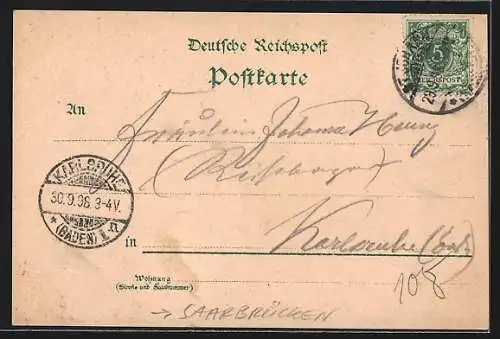 Deutsche Reichspost
Postkarte
5
REICHSPOST
An
Fräulein Johanna
KARLSRUHE
30.9.98.3-4V.
(BADEN)
Karlsruhe
in
Wohnung
(Straße und Hausnummer)
108
→ SAARBRÜCKEN